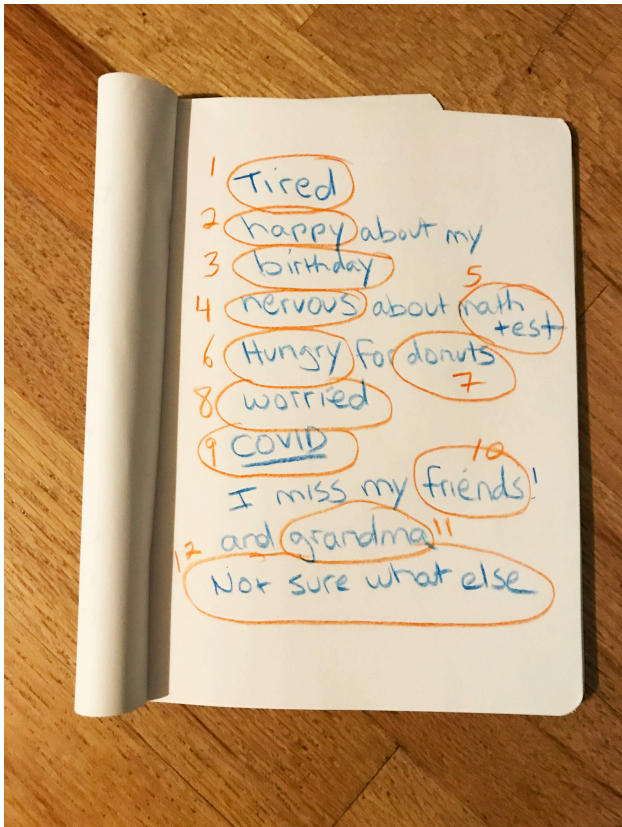 1 Tired
2 happy about my
3 birthday
4 nervous about math 5
test
6 Hungry for donuts 7
8 worried
9 COVID
I miss my friends! 10
and grandma 11
12 Not sure what else